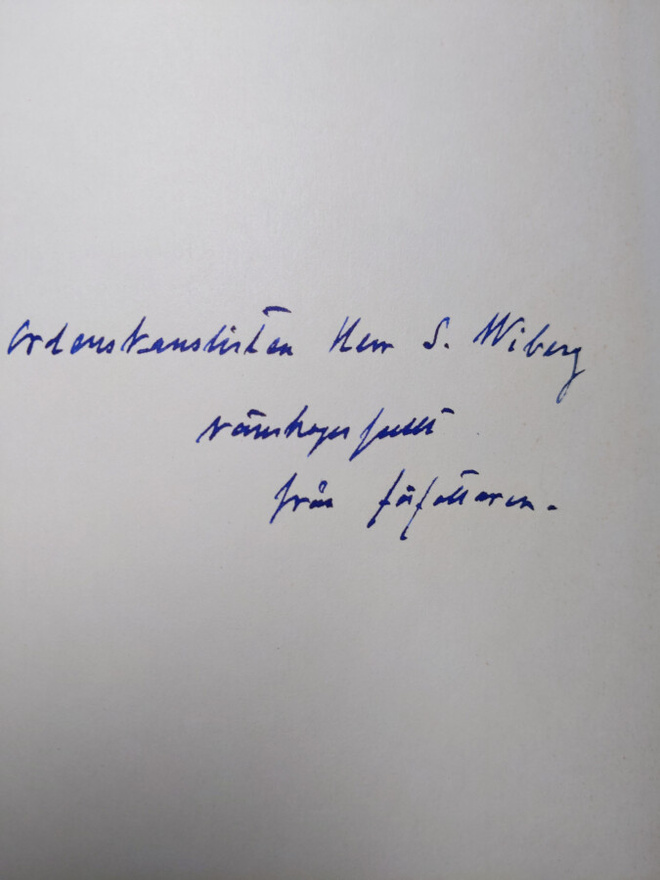 Ordenskanslisten Herr S. Wiberg
vänskapsfullt
från författaren.